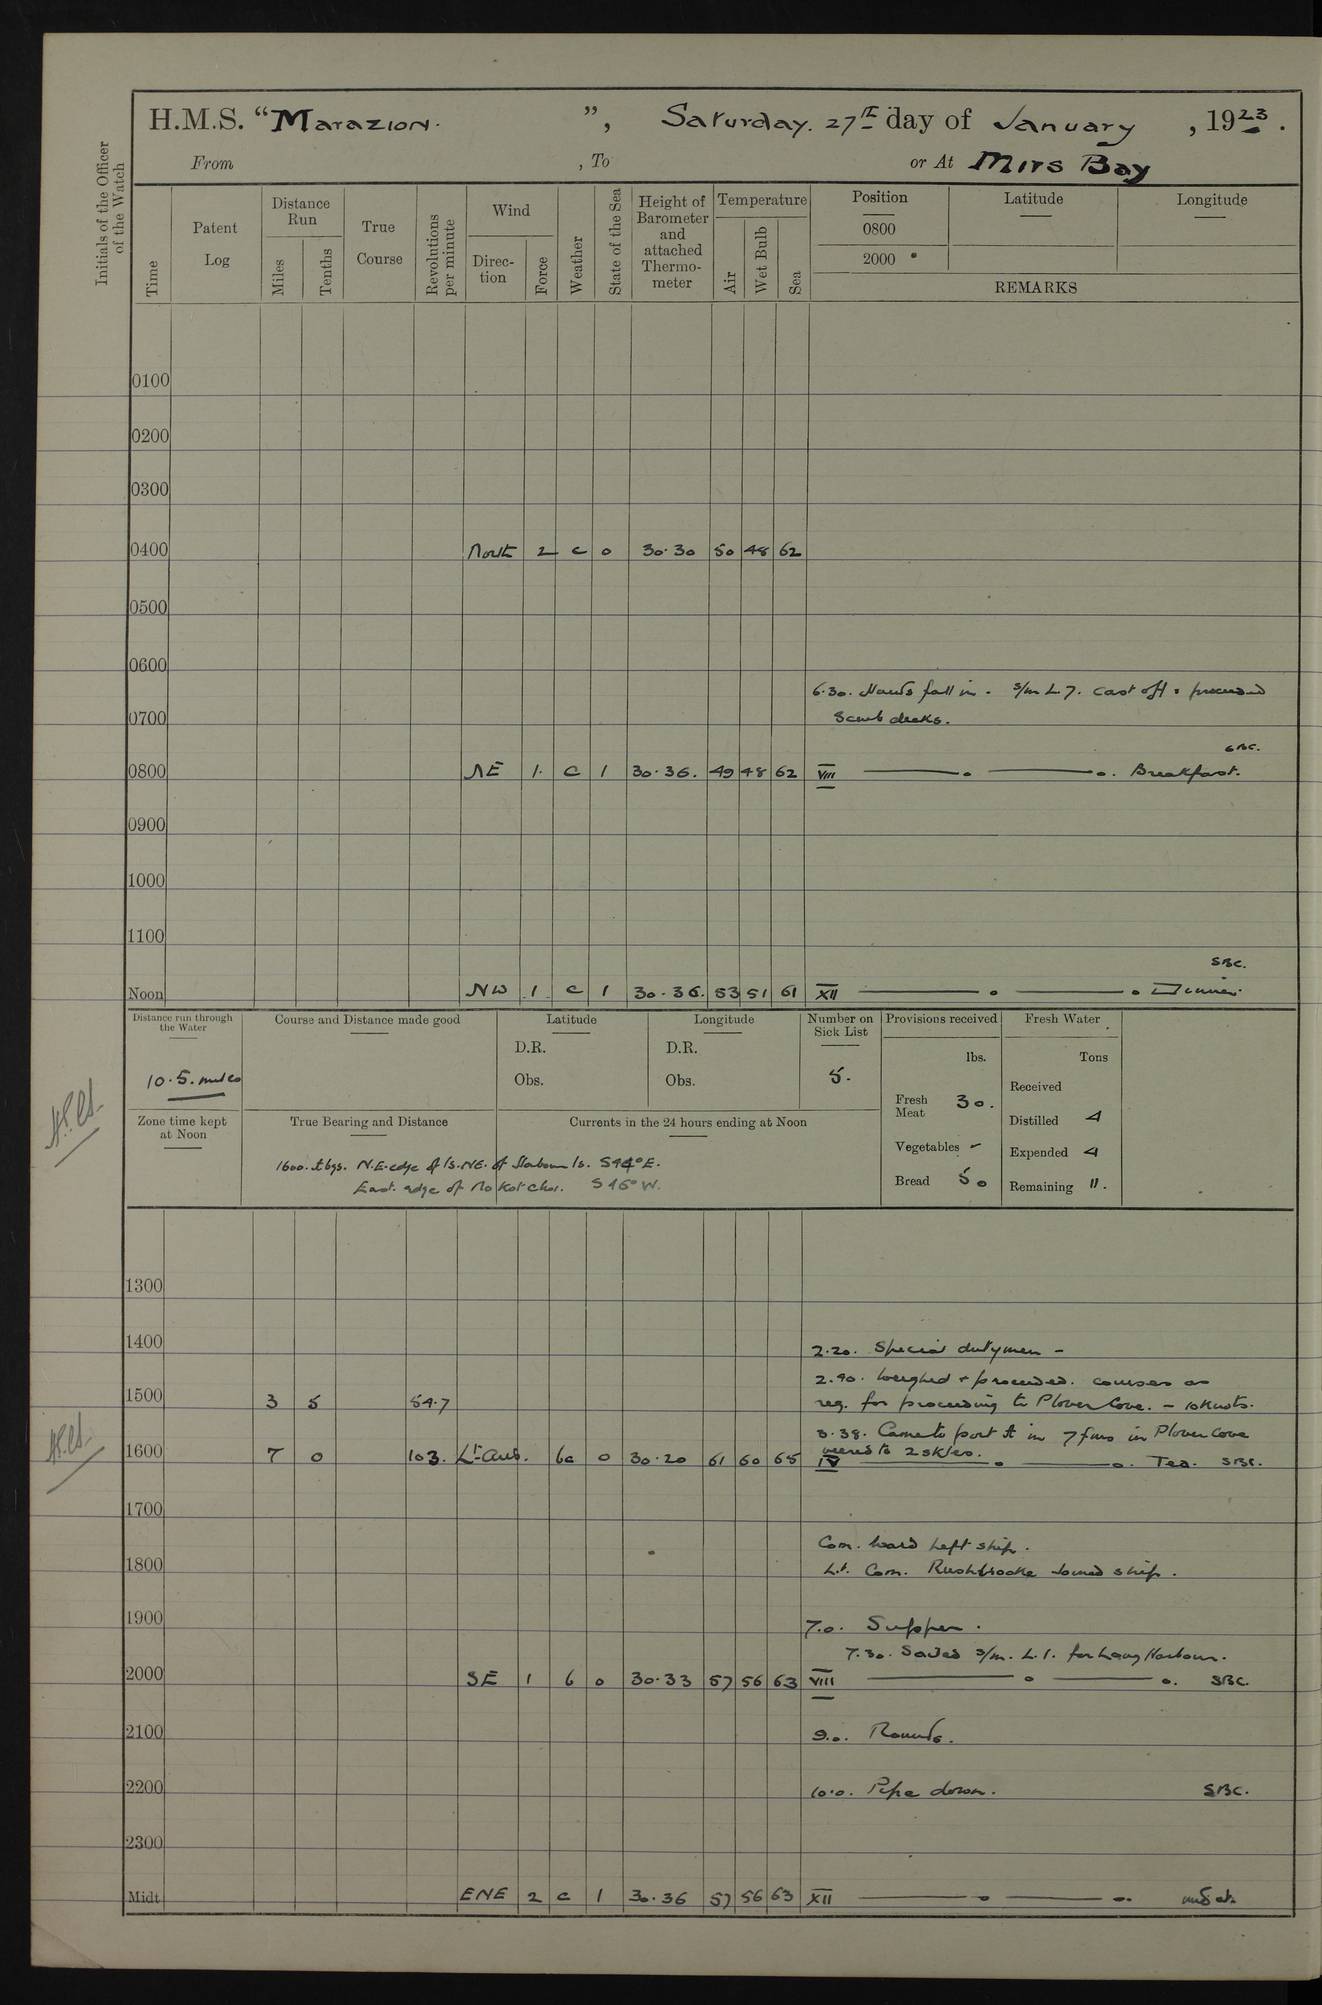 H.M.S. “Marazion. ”, Saturday. 27th day of January, 1923.
From , To or At Mirs Bay
Initials of the Officer of the Watch
Time
Patent Log
Distance Run
Miles
Tenths
True Course
Revolutions per minute
Wind
Direction
Force
Weather
State of the Sea
Height of Barometer and attached Thermometer
Temperature
Air
Wet Bulb
Sea
Position Latitude Longitude
0800
2000
REMARKS
0100
0200
0300
0400 North 2 c 0 30.30 50 48 62
0500
0600
6.30. Hands fall in. s/m L 7. cast off & proceeded
0700 Scrub decks.
SBC.
0800 NE 1. C 1 30.36. 49 48 62 VIII Breakfast.
0900
1000
1100
SBC.
Noon NW 1 C 1 30.36. 53 51 61 XII Dinner.
Distance run through the Water
10.5. miles
Course and Distance made good
Latitude
D.R.
Obs.
Longitude
D.R.
Obs.
Number on Sick List
5.
Provisions received
lbs.
Fresh Meat 30.
Vegetables -
Bread 50
Fresh Water
Tons
Received
Distilled 4
Expended 4
Remaining 11.
Zone time kept at Noon
True Bearing and Distance
Currents in the 24 hours ending at Noon
1600. N.E. edge of Is. NE. of Harbour Is. S44°E.
East edge of S46°W.
1300
1400
2.20. Special dutymen -
2.40. Weighed & proceeded. courses as
1500 3 5 54.7 req. for proceeding to Plover Cove. - 10 Knots.
3.38. Came to port in 7 fms in Plover Cove
veered to 2 skles.
1600 7 0 103. Lt. airs. bc 0 30.20 61 60 65 IV Tea. SBC.
1700
Com. Ward Left ship.
1800 Lt. Com. Rushbrooke Joined ship.
1900 7.0. Supper.
7.30. Sailed s/m. L.1. for Long Harbour.
2000 SE 1 b 0 30.33 57 56 63 VIII SBC.
2100 9.0. Rounds.
2200 10.0. Pipe down. SBC.
2300
Midt ENE 2 C 1 30.36 57 56 63 XII